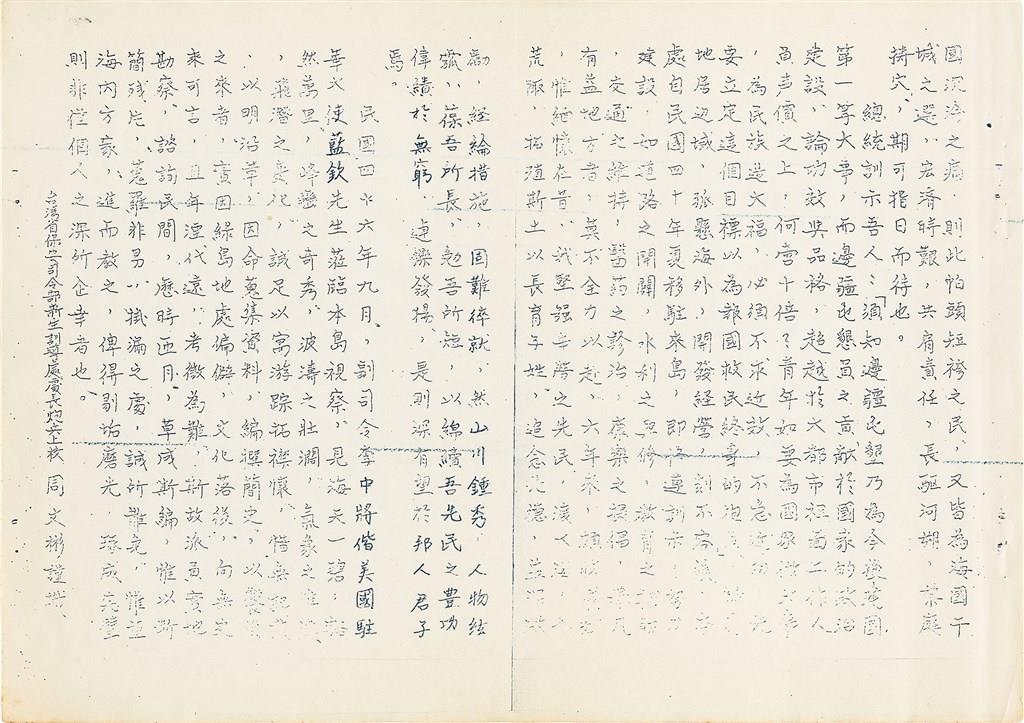 國沉淪之痛，則此帕頭短袴之民，又皆為海國干
城之選，宏濟時艱，共肩責任，長驅河朔，犂庭
掃穴，期可指日而待也。
總統訓示吾人：「須知邊疆屯墾乃為今後建國
第一等大事，而邊疆屯墾員之貢獻於國家的政治
建設，論功效與品格，超越於大都市裡面工作人
員声價之上，何啻十倍？青年如要為國家做大事
，為民族造大福，必須不求近效，不急近功，先
要立定這個目標以為報國救民終身的
地居边域，孤懸海外，開發經營，刻不容緩，本
處自民國四十年夏移駐來島，即恪遵訓示，努力
建設，如道路之開闢，水利之興修，教育之
，交通之維持，醫药之診治，康樂之提倡，
有益地方者，莫不全力以赴，六年來，頗
，惟緬懷在昔，我堅强辛勞之先民，
荒陬，拓殖斯土以長育子姓，追念先德，並
勵，經綸措施，固難猝就，然山川鍾秀，人物
，葆吾所長，勉吾所短，以綿續吾先民之豊功
偉績於無窮，連鑠發揚，是則深有望於邦人君子
焉。
民國四十六年九月，副司令李中將偕美國駐
華大使藍欽先生蒞臨本島視察，見海天一碧，
然萬里，峰巒之奇秀，波濤之壯濶，氣象之
，飛潛之变化，誠足以寓游踪拓襟懷，惜無
，以明沿革，因命蒐集資料，編撰簡史，以
之來者，實因緑島地處偏僻，文化落後，向無史
來可言，且年湮代遠，考徵為難，斯故派員實地
勘察，諮詢民間，歷時匝月，草成斯編，惟以斷
簡残片，蒐羅非易，掛漏之處，誠所難免，惟望
海内方家，進而教之，俾得剔垢磨光，臻成完璧
則非僅個人之深所企幸者也。
台灣省保安司令部新生訓導處處長炮兵上校周文彬謹識